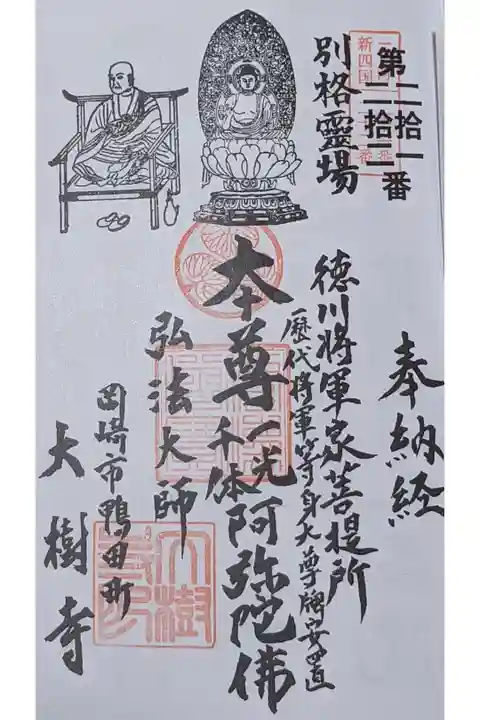 奉納経
第二拾一番
二拾二
新四国
番
別格靈場
徳川将軍家菩提所
歴代将軍等身大尊牌安置
本尊一光千体阿弥陀佛
弘法大師
岡崎市鴨田町
大樹寺
大樹寺印